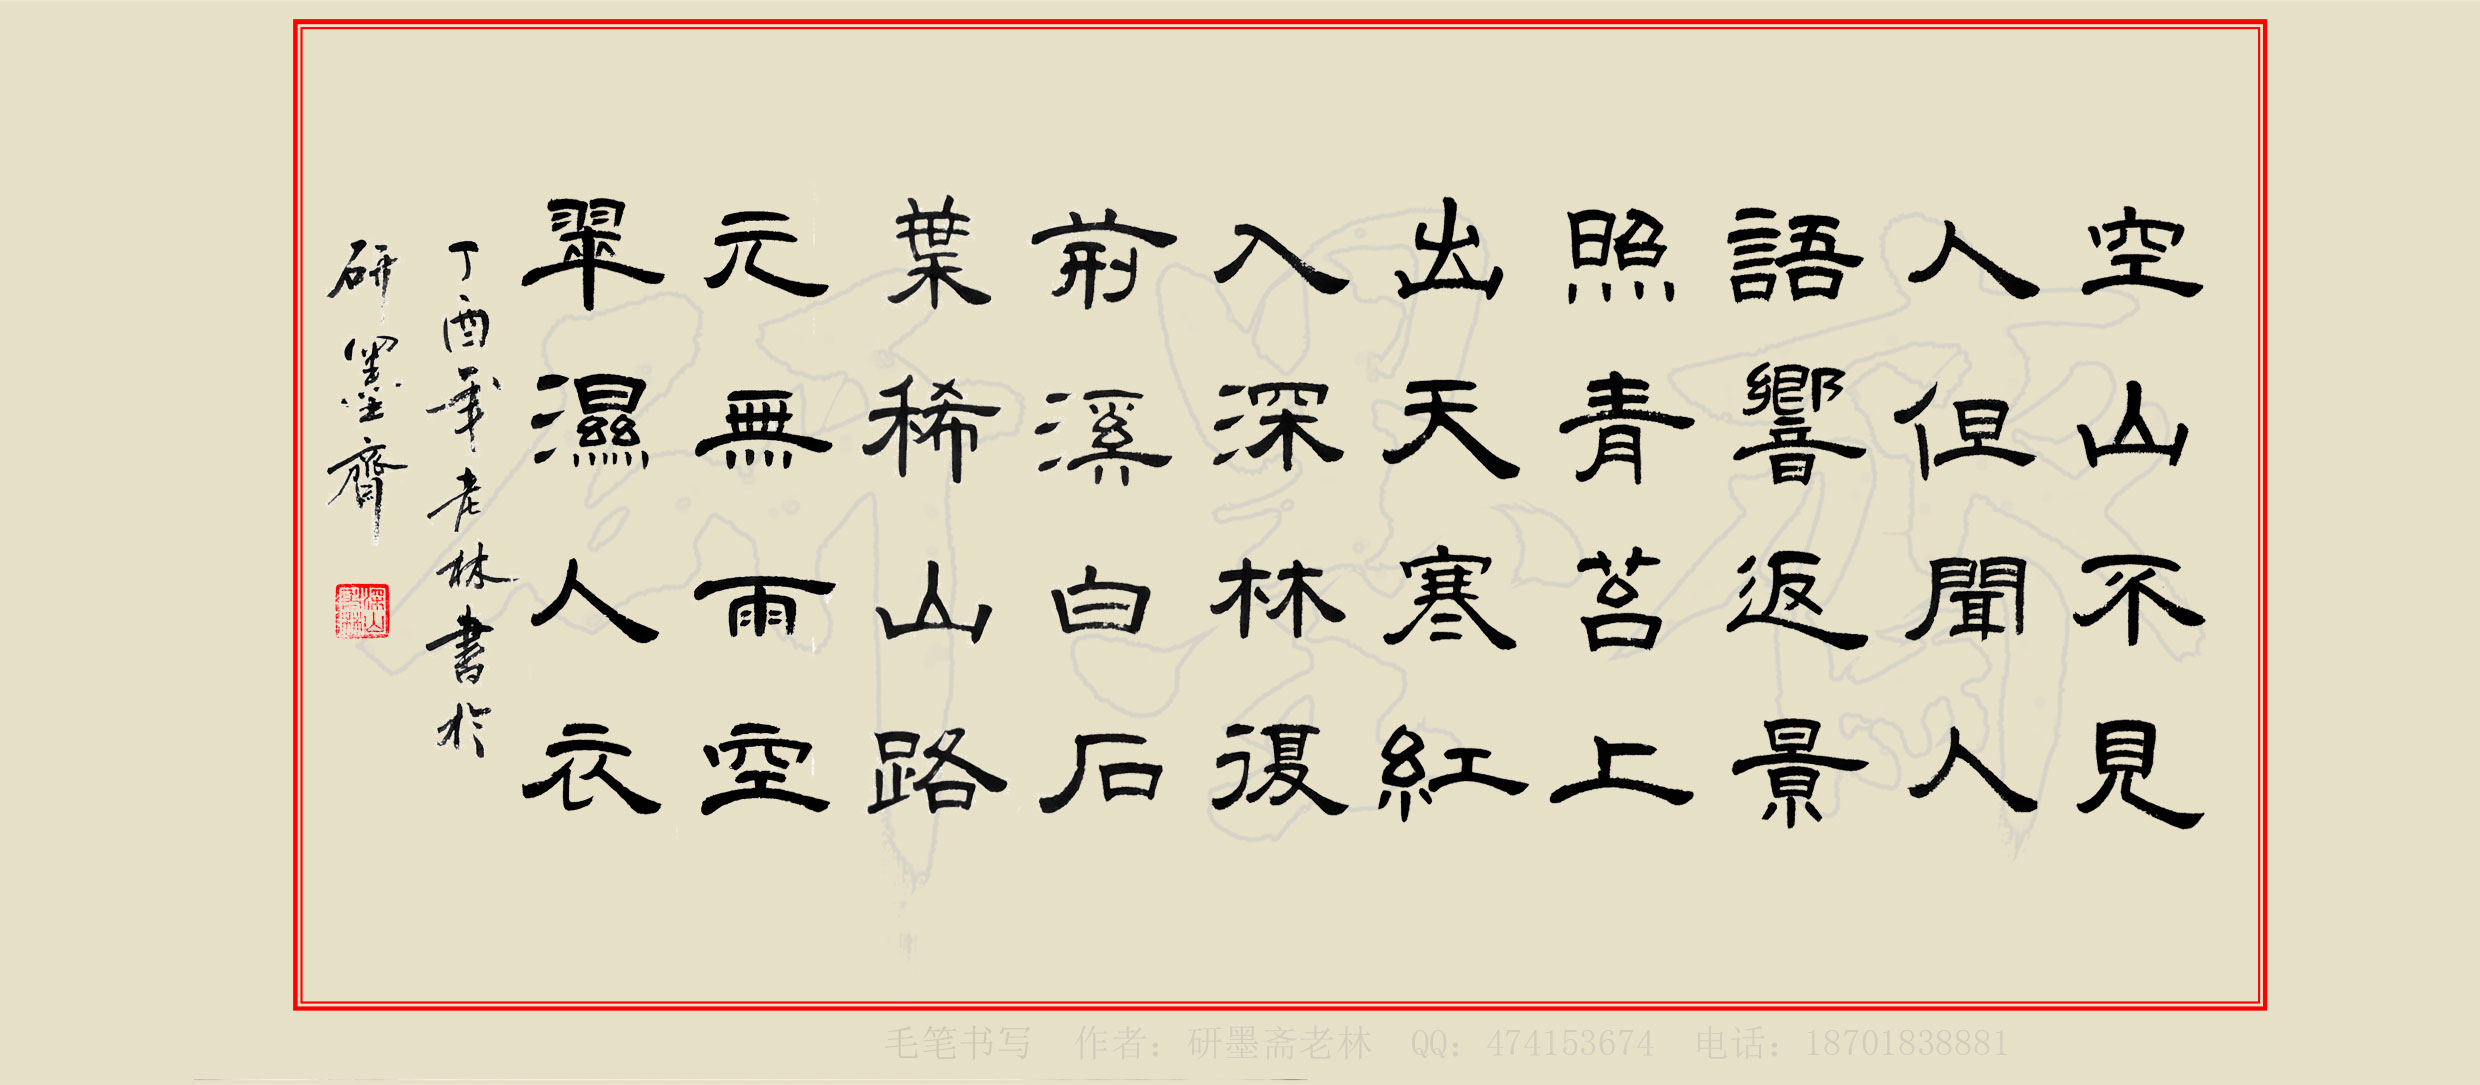 空山不見
人但聞人
語響返景
照青苔上
出天寒紅
入深林復
荊溪白石
葉稀山路
元無雨空
翠濕人衣
丁酉年老林書於
研墨齋
深山
毛笔书写 作者：研墨斋老林 QQ：474153674 电话：18701838881